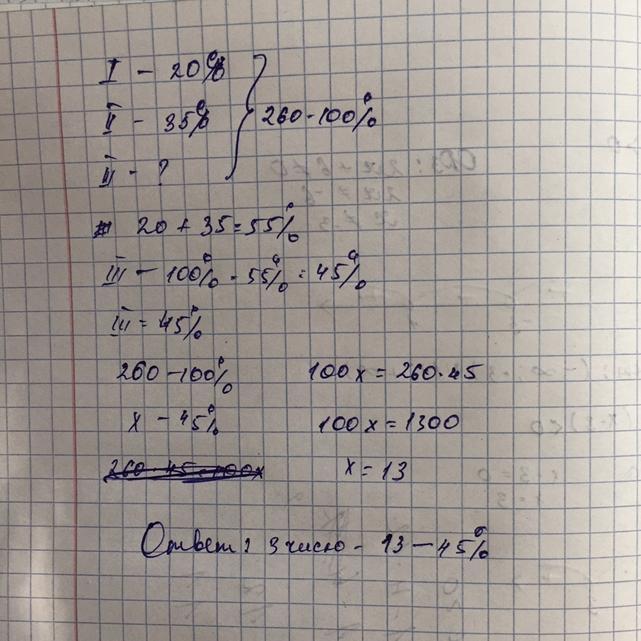 I - 20%
II - 35% } 260 - 100%
III - ?
20 + 35 = 55%
III - 100% - 55% = 45%
III = 45%
260 - 100%
100x = 260·45
x - 45%
100x = 1300
260·45=100x
x = 13
Ответ: 3 число - 13 - 45%